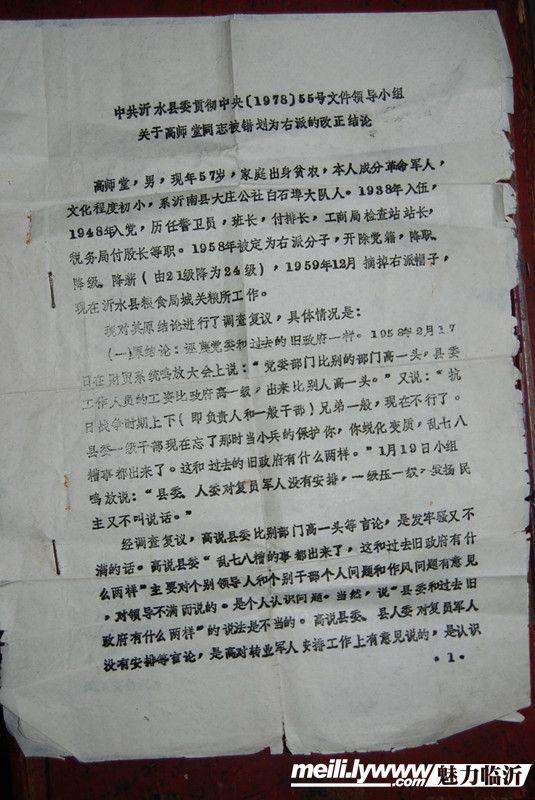 中共沂水县委贯彻中央(1978)55号文件领导小组
关于高师堂同志被错划为右派的改正结论
高师堂，男，现年57岁，家庭出身贫农，本人成分革命军人，
文化程度初小，系沂南县大庄公社白石埠大队人。1938年入伍，
1948年入党，历任警卫员，班长，付排长，工商局检查站站长，
税务局付股长等职。1958年被定为右派分子，开除党籍，降职、
降级、降薪（由21级降为24级），1959年12月摘掉右派帽子，
现在沂水县粮食局城关粮所工作。
现对其原结论进行了调查复议，具体情况是：
(一)原结论：诬蔑党委和过去的旧政府一样。1958年2月17
日在财贸系统鸣放大会上说：“党委部门比别的部门高一头，县委
工作人员的工资比政府高一级，出来比别人高一头。”又说：“抗
日战争时期上下（即负责人和一般干部）兄弟一般，现在不行了。
县委一级干部现在忘了那时当小兵的保护你，你蜕化变质，乱七八
糟事都出来了。这和过去的旧政府有什么两样。”1月19日小组
鸣放说：“县委、人委对复员军人没有安排，一级压一级，发扬民
主又不叫说话。”
经调查复议，高说县委比别部门高一头等言论，是发牢骚又不
满的话。高说县委“乱七八糟的事都出来了，这和过去旧政府有什
么两样”主要对个别领导人和个别干部个人问题和作风问题有意见
，对领导不满而说的。是个人认识问题。当然，说“县委和过去旧
政府有什么两样”的说法是不当的。高说县委、县人委对复员军人
没有安排等言论，是高对转业军人安排工作上有意见说的，是认识
·1·
meili.lywww.com 魅力临沂